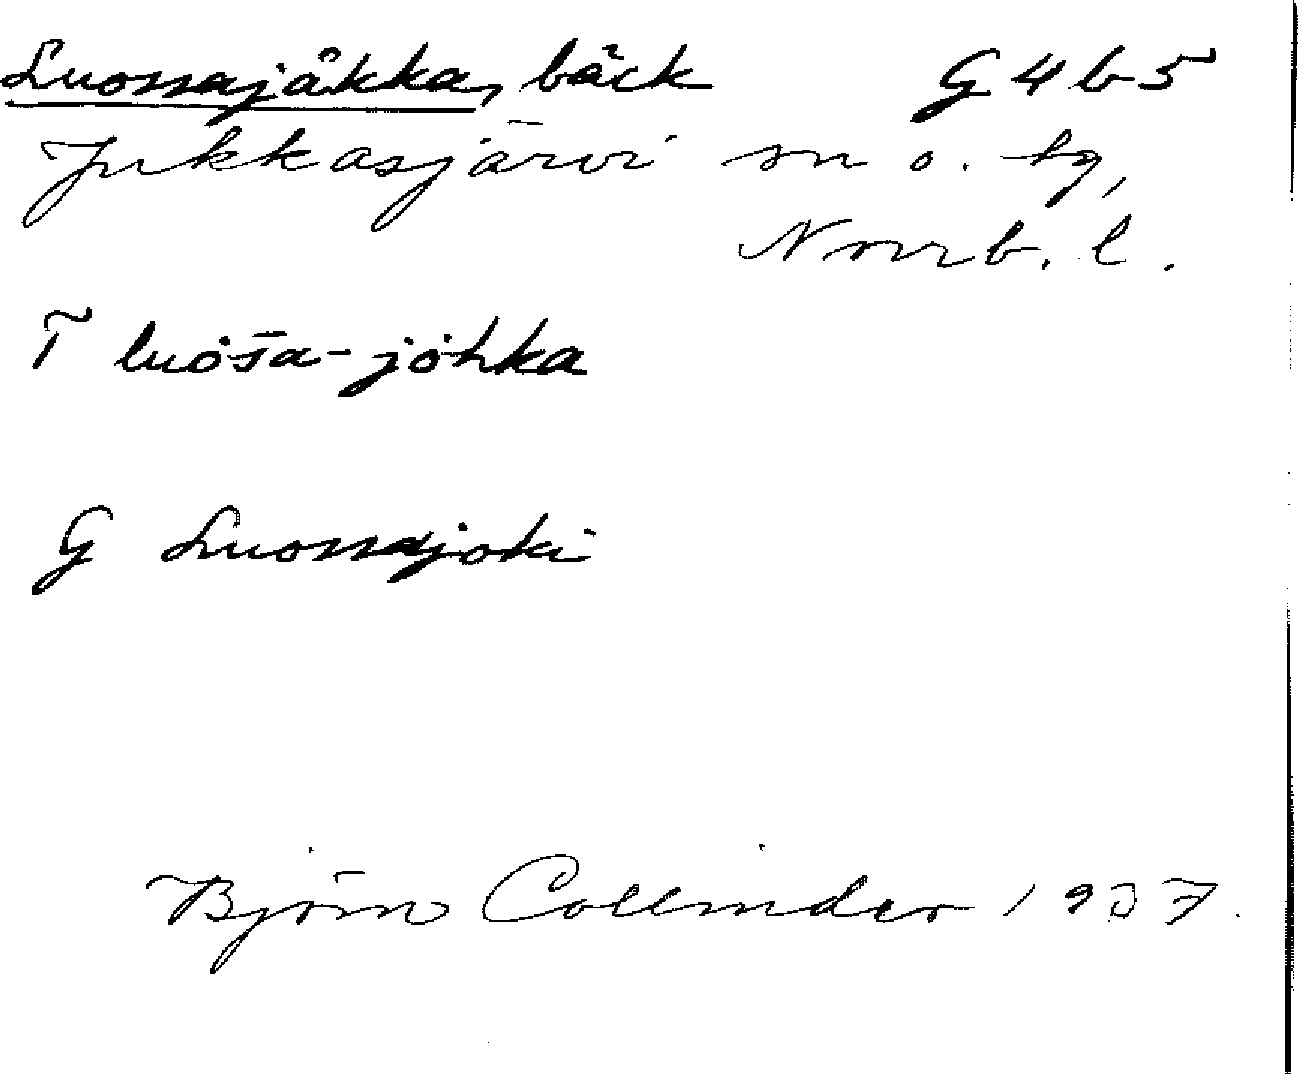 Luossajåkka, bäck G4b5
Jukkasjärvi sn o. tg,
Norrb. l.
T luọs̄a-jọhka
G Luossajoki
Björn Collinder 1937.